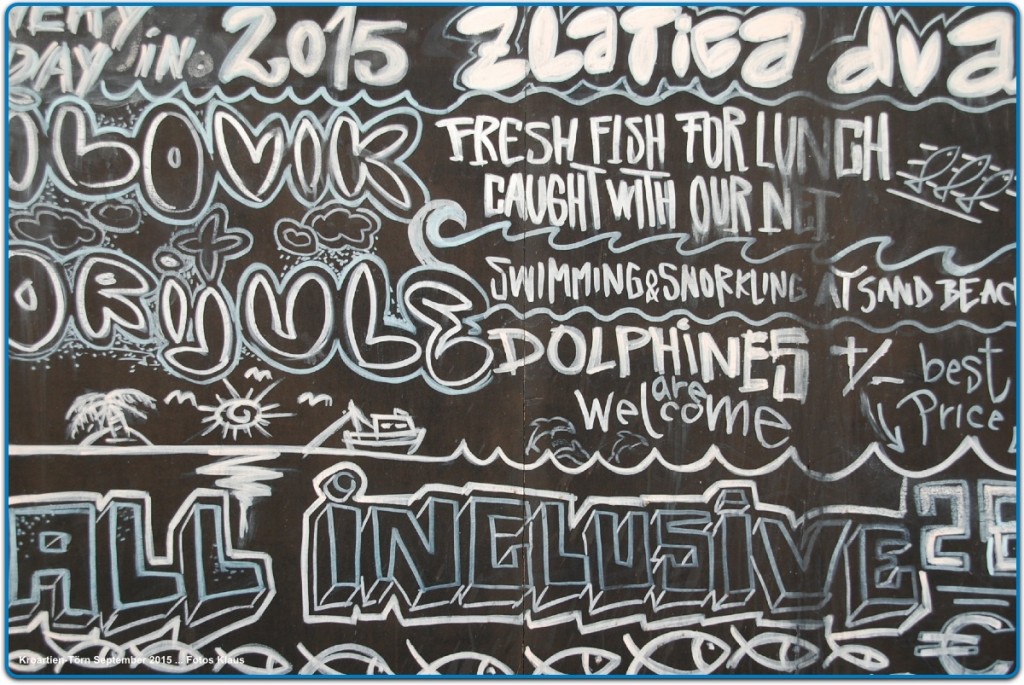 DAY in. 2015
ZLATICA dva
iLOViK
FRESH FISH FOR LUNCH
CAUGHT WITH OUR NET
ORiJULE
SWIMMING & SNORKLING AT SAND BEAC
DOLPHiNES
are
Welcome
+/- best
Price
ALL iNCLUSiVE
€
Kroartien-Törn September 2015 ... Fotos Klaus